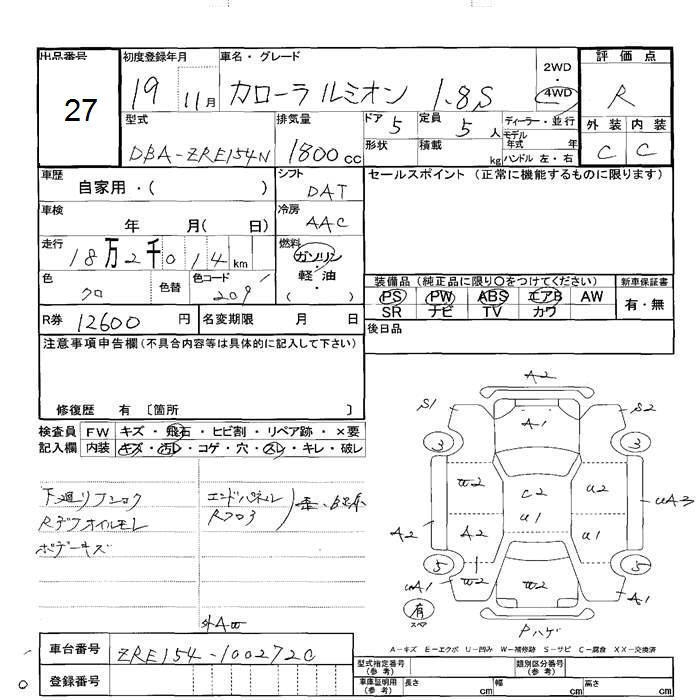 出品番号 初度登録年月 車名・グレード 2WD・4WD 評価点
27 19 11月 カローラルミオン 1.8S R
型式 排気量 ドア 5 定員 5人 ディーラー・並行 外装 内装
DBA-ZRE154N 1800cc 形状 積載 kg モデル年式 年 ハンドル 左・右 C C
車歴 自家用・( ) シフト DAT セールスポイント (正常に機能するものに限ります)
車検 年 月( 日) 冷房 AAC
走行 18万2千014km 燃料 ガソリン・軽油・( )
色 クロ 色替 色コード 209
装備品 (純正品に限り〇をつけてください) 新車保証書
PS PW ABS エアB AW 有・無
SR ナビ TV カワ
R券 12600円 名変期限 月 日 後日品
注意事項申告欄(不具合内容等は具体的に記入して下さい)
修復歴 有 〔箇所 〕
検査員 FW キズ・飛石・ヒビ割・リペア跡・×要
記入欄 内装 キズ・汚レ・コゲ・穴・スレ・キレ・破レ
下廻リフショク エンドパネル
Rデフオイルモレ Rフロア
ボデーキズ
A2
S1 A1 S2
3 3
W2 C2 U2 UA3
A2 A2 U1 U1
5 5
UA1 W2 W2 A1
有 スペア Pハゲ
A−キズ E−エクボ U−凹み W−補修跡 S−サビ C−腐食 XX−交換済
車台番号 ZRE154-1002720 型式指定番号(参考) 類別区分番号(参考)
登録番号 車庫証明用(参考) 長さ cm 幅 cm 高さ cm